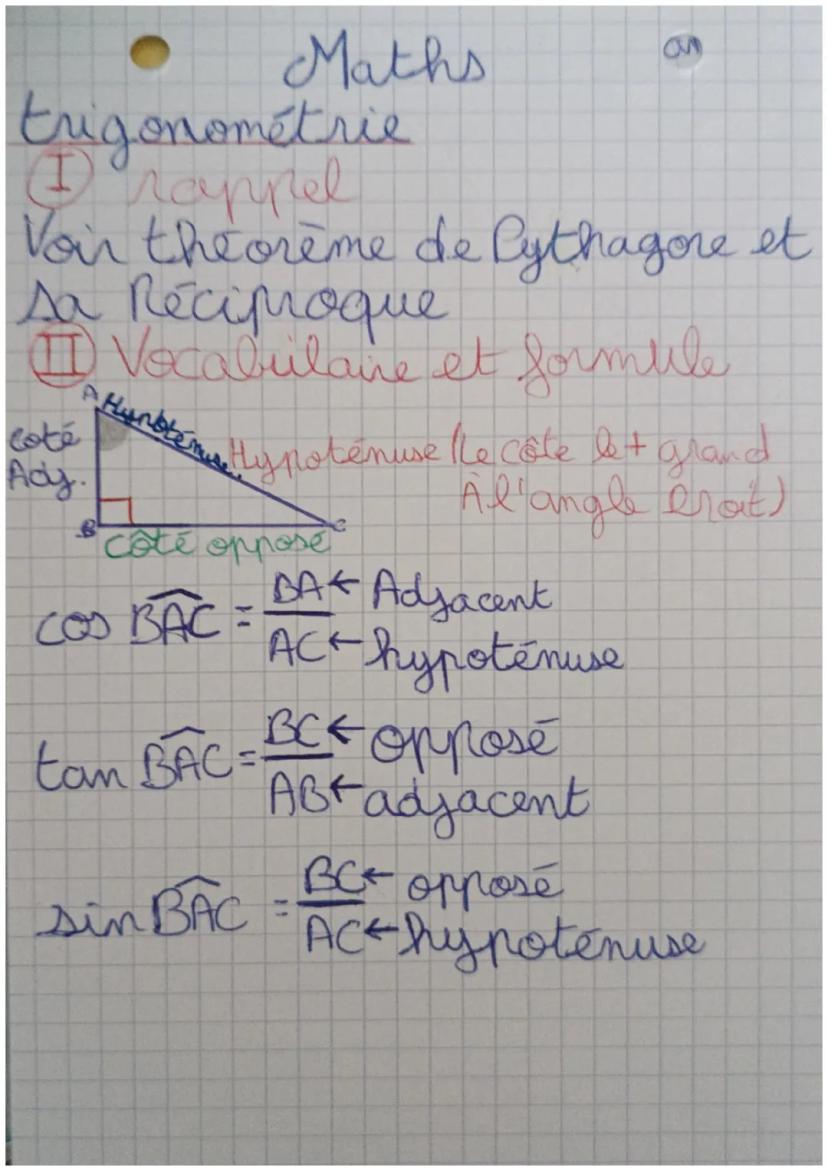 Maths
trigonométrie
I rappel
Voir théorème de Pythagore et
sa Réciproque
II Vocabulaire et formule
A Hypoténuse
coté
Adj.
Hypoténuse (Le côte le + grand
À l'angle Droit)
B C
Côté opposé
cos BAC = BA ← Adjacent
AC ← hypoténuse
tan BAC = BC ← opposé
AB ← adjacent
sin BAC = BC ← opposé
AC ← hypoténuse